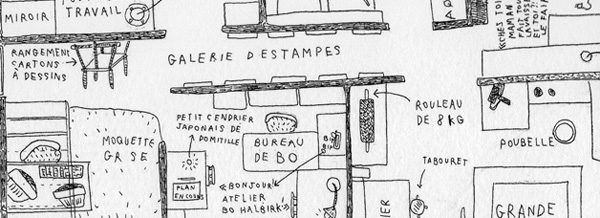 MIROIR
TRAVAIL
RANGEMENT
CARTONS
À DESSINS
GALERIE D'ESTAMPES
CHES TOI
MAMAN
FAIT TOUT
LAVAISSE
ET TOI?!
LE FAI
PETIT CENDRIER
JAPONAIS DE
DOMITILLE
ROULEAU
DE 8 KG
MOQUETTE
GRISE
BUREAU
DE BO
POUBELLE
TABOURET
PLAN
EN COURS
«BONJOUR
ATELIER
BO HALBIRK»
IER
GRANDE